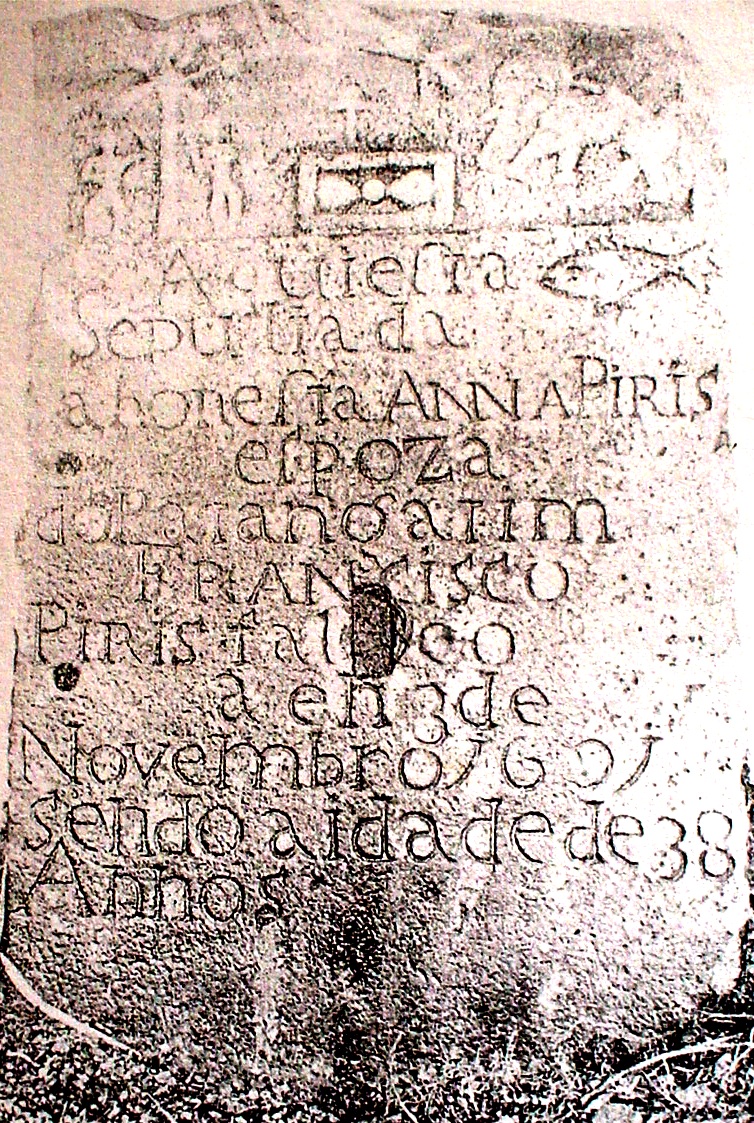 Aqui esta
Sepultada
a honesta ANNA PIRIS
espoza
do Patangatim
FRANCISCO
PIRIS faleco
a en 3 de
Novembro
sendo a idade de 38
Annos